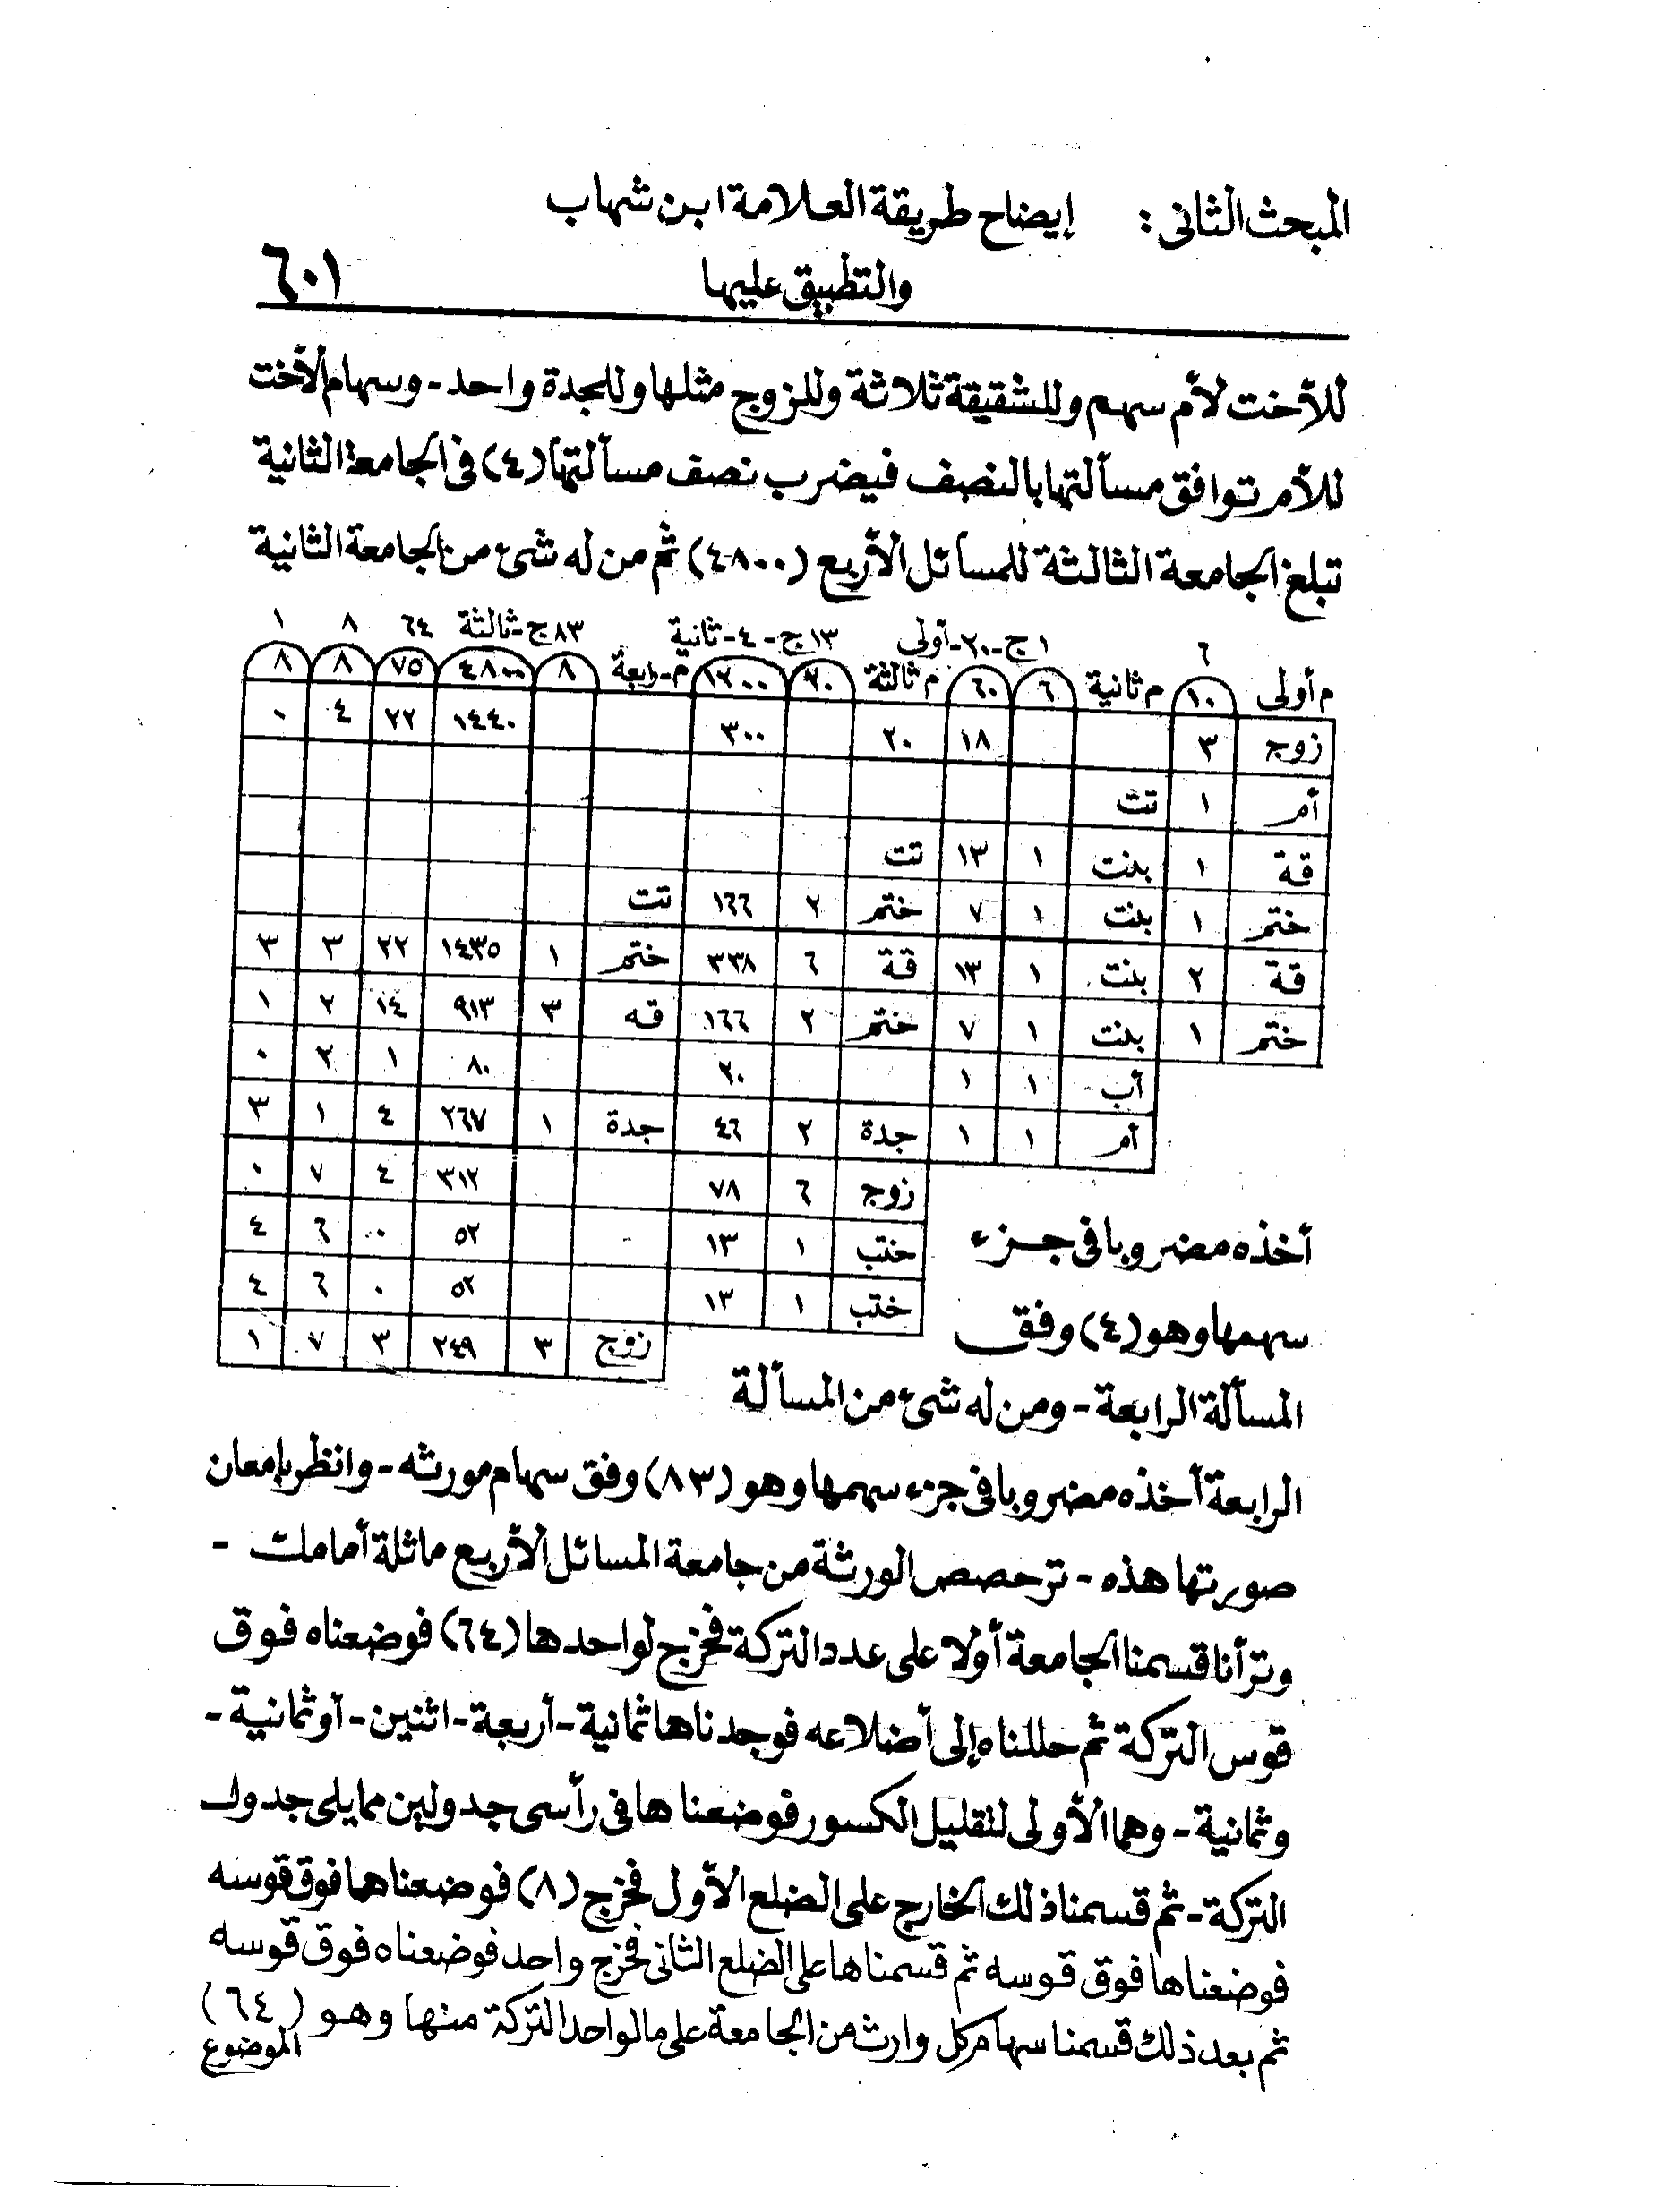 المبحث الثانى : إيضاح طريقة العلامة ابن شهاب
والتطبيق عليها
٦٠١
للأخت لأم سهم وللشقيقة ثلاثة وللزوج مثلها وللجدة واحد - وسهام الأخت
للأم توافق مسألتها بالنصف فيضرب نصف مسألتها (٤) فى الجامعة الثانية
تبلغ الجامعة الثالثة للمسائل الأربع (٤٨٠٠) ثم من له شئ من الجامعة الثانية
٦ ١ج-٢٠-أولى ١٣ج-٤-ثانية ٨٣ج-ثالثة ٦٤ ٨ ١
م أولى ١٠ م ثانية ٦ ٦٠ م ثالثة ٢٠ ١٢٠٠ م-رابعة ٨ ٤٨٠٠ ٧٥ ٨ ٨
زوج ٣ ١٨ ٢٠ ٣٠٠ ١٤٤٠ ٢٢ ٤ ٠
أم ١ تت
قة ١ بنت ١ ١٣ تت
ختم ١ بنت ١ ٧ ختم ٢ ١٦٦ تت
قة ٢ بنت ١ ١٣ قة ٦ ٣٣٨ ختم ١ ١٤٣٥ ٢٢ ٣ ٣
ختم ١ بنت ١ ٧ ختم ٢ ١٦٦ قه ٣ ٩١٣ ١٤ ٢ ١
أب ١ ١ ٢٠ ٨٠ ١ ٢ ٠
أم ١ ١ جدة ٢ ٤٦ جدة ١ ٢٦٧ ٤ ١ ٣
زوج ٦ ٧٨ ٣١٢ ٤ ٧ ٠
ختب ١ ١٣ ٥٢ ٠ ٦ ٤
ختب ١ ١٣ ٥٢ ٠ ٦ ٤
زوج ٣ ٢٤٩ ٣ ٧ ١
أخذه مضروبا فى جزء
سهمها وهو (٤) وفق
المسألة الرابعة - ومن له شئ من المسألة
الرابعة أخذه مضروبا فى جزء سهمها وهو (٨٣) وفق سهام مورثه - وانظر بإمعان
صورتها هذه - تر حصص الورثة من جامعة المسائل الأربع ماثلة أمامك -
وتر أنا قسمنا الجامعة أولا على عدد التركة فخرج لواحدها (٦٤) فوضعناه فوق
قوس التركة ثم حللناه إلى أضلاعه فوجدناها ثمانية - أربعة - اثنين - أو ثمانية -
وثمانية - وهما الأولى لتقليل الكسور فوضعناها فى رأسى جدولين مما يلى جدول
التركة - ثم قسمنا ذلك الخارج على الضلع الأول فخرج (٨) فوضعناهما فوق قوسه
فوضعناها فوق قوسه ثم قسمناها على الضلع الثانى فخرج واحد فوضعناه فوق قوسه
ثم بعد ذلك قسمنا سهام كل وارث من الجامعة على ما لواحد التركة منها وهو (٦٤)
الموضوع